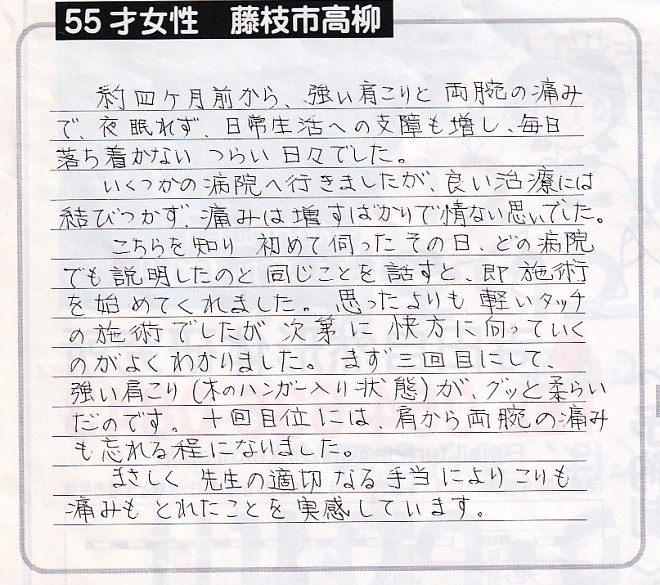 55才女性　藤枝市高柳
約四ヶ月前から、強い肩こりと両腕の痛み
で、夜眠れず、日常生活への支障も増し、毎日
落ち着かない つらい日々でした。
いくつかの病院へ行きましたが、良い治療には
結びつかず、痛みは増すばかりで情ない思いでした。
こちらを知り 初めて伺ったその日、どの病院
でも説明したのと同じことを話すと、即施術
を始めてくれました。思ったよりも軽いタッチ
の施術でしたが 次第に快方に向っていく
のがよくわかりました。まず三回目にして、
強い肩こり(木のハンガー入り状態)が、グッと柔らい
だのです。十回目位には、肩から両腕の痛み
も忘れる程になりました。
まさしく 先生の適切なる手当によりこりも
痛みもとれたことを実感しています。